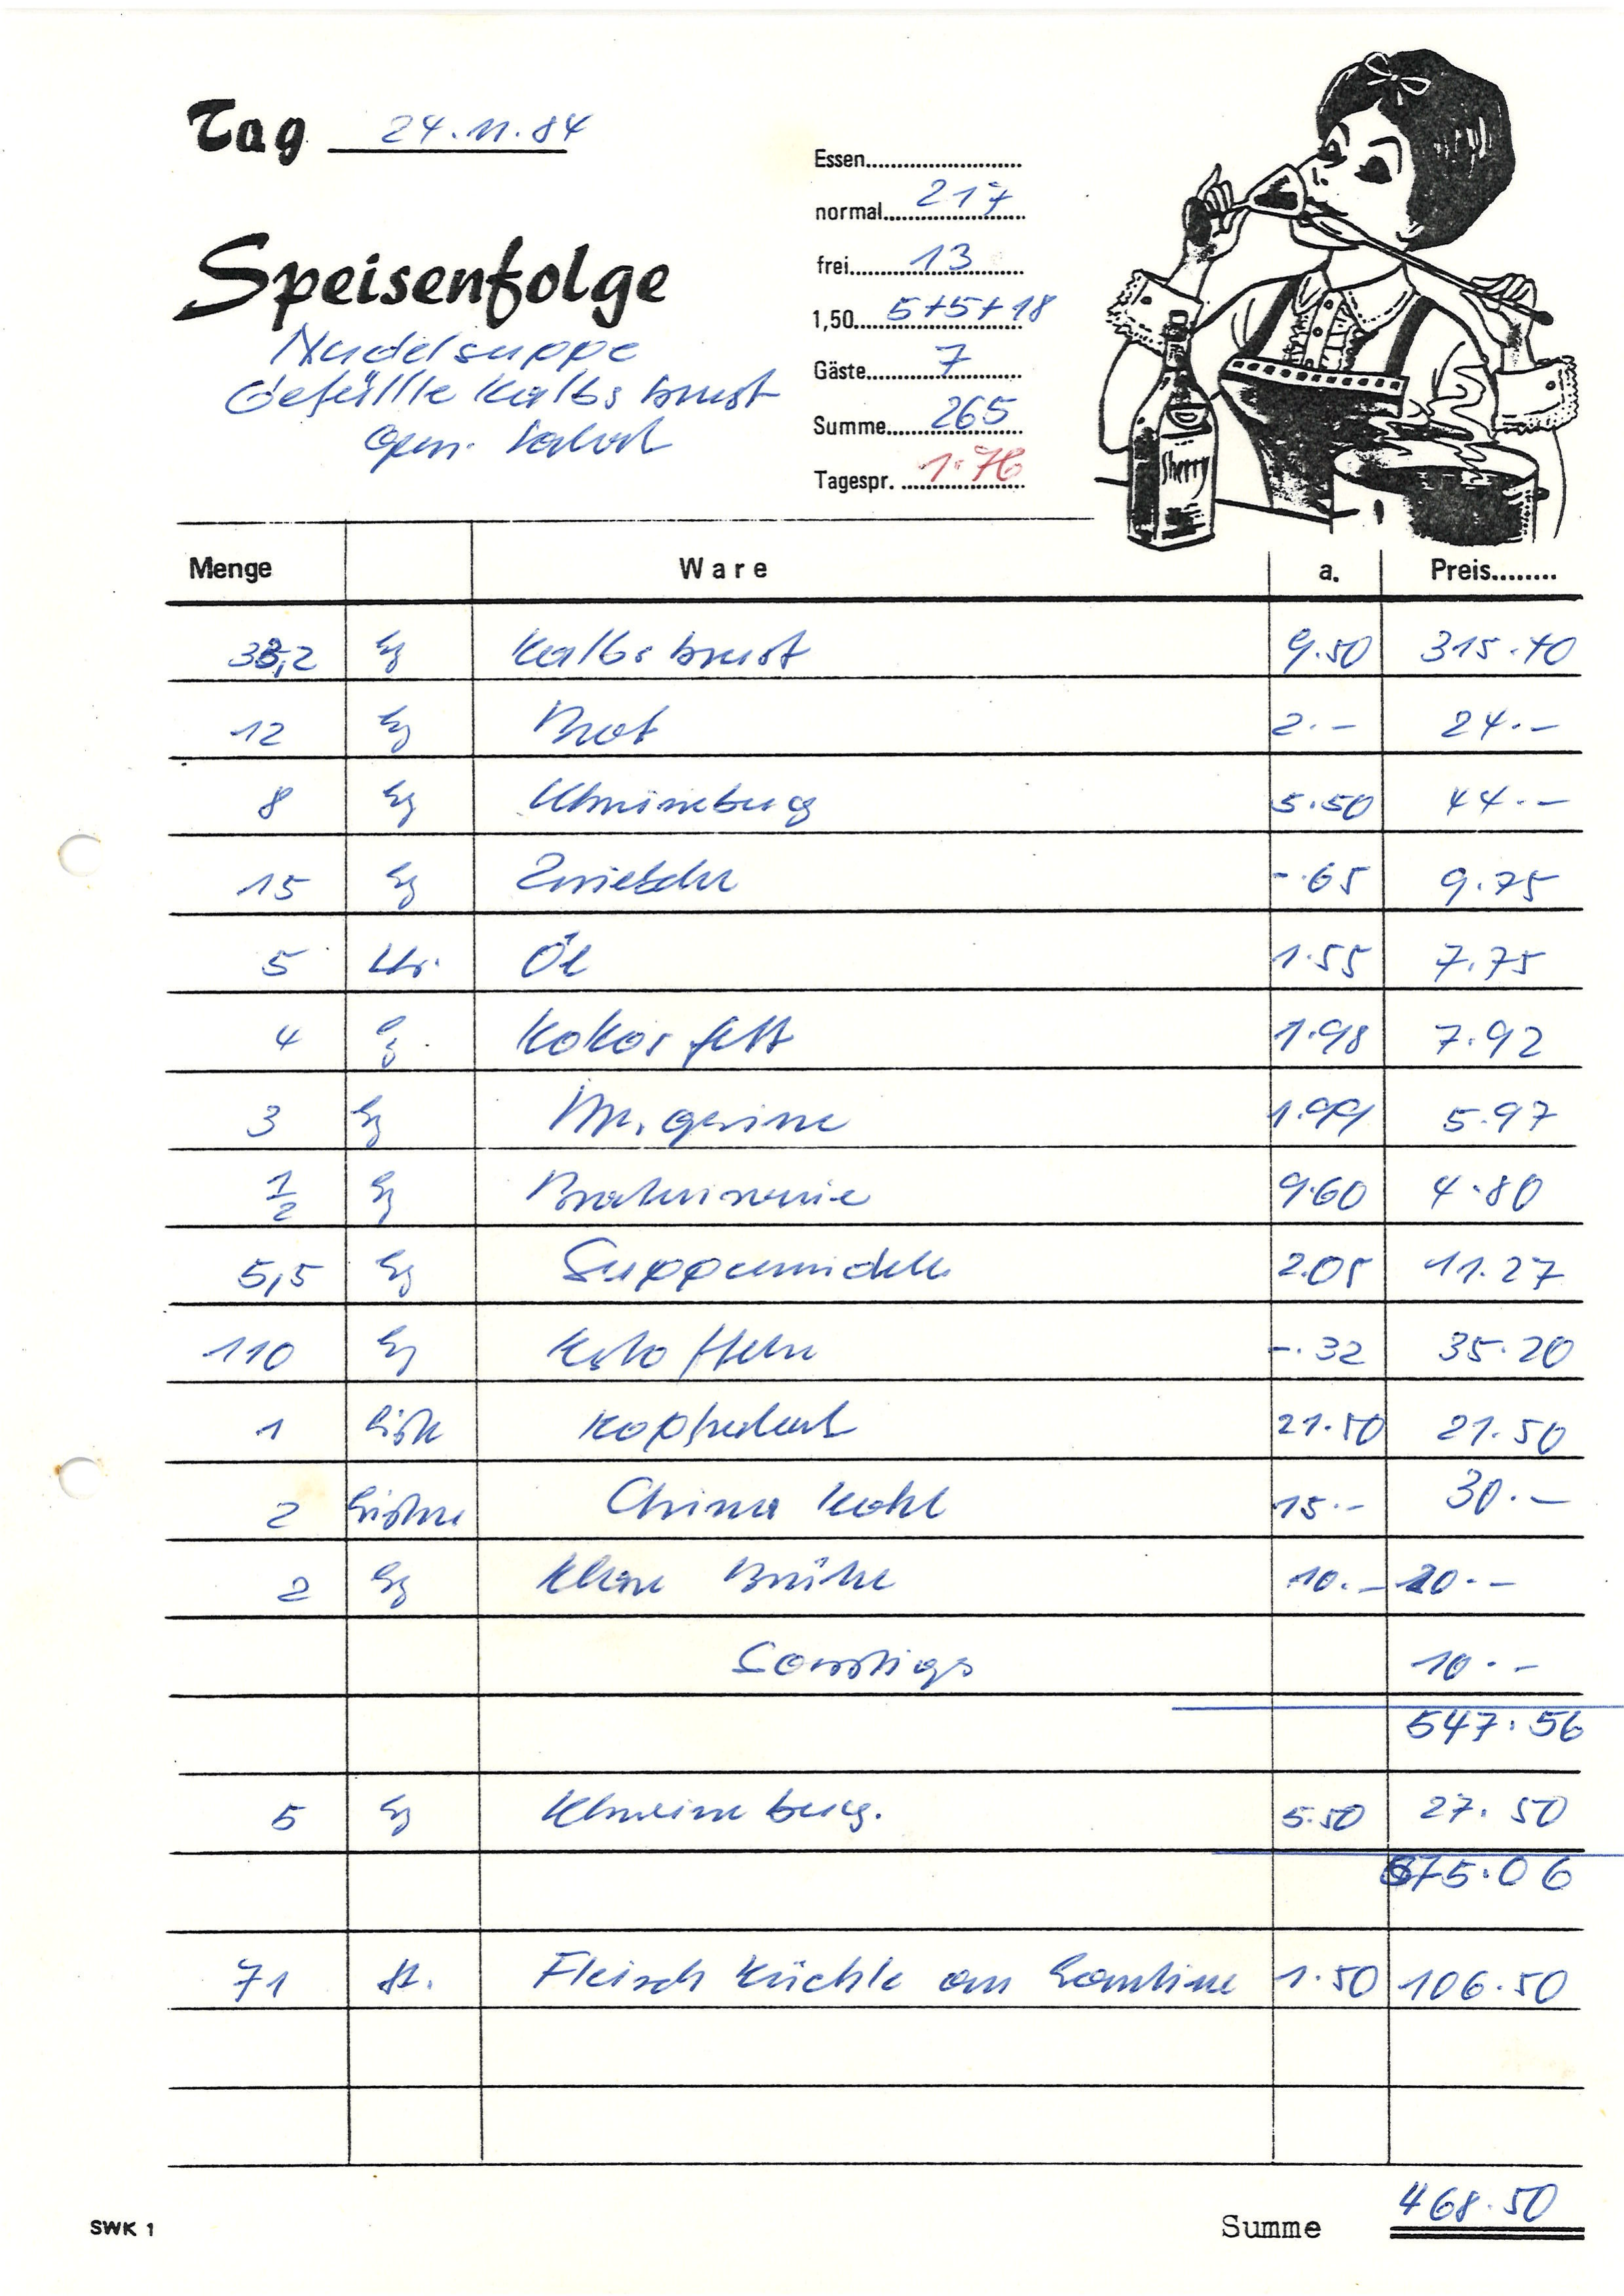 Tag 24.11.84
Essen
normal 217
frei 13
1,50 5+5+18
Gäste 7
Summe 265
Tagespr. 1.76
Speisenfolge
Nudelsuppe
Gefüllte Kalbsbrust
Gem. Salat
Sherry
Menge Ware a. Preis
33,2 Kg Kalbsbrust 9.50 315.40
12 Kg Brat 2.- 24.-
8 Kg Schweineburg 5.50 44.-
15 Kg Zwiebeln -.65 9.75
5 Ltr. Öl 1.55 7.75
4 Kg Kokosfett 1.98 7.92
3 Kg Margarine 1.99 5.97
1/2 Kg 9.60 4.80
5,5 Kg Suppennudeln 2.05 11.27
110 Kg Kartoffeln -.32 35.20
1 Kiste Kopfsalat 21.50 21.50
2 Kisten China Kohl 15.- 30.-
2 Kg Klare Brühe 10.- 20.-
Sonstiges 10.-
547.56
5 Kg Schweineburg. 5.50 27.50
575.06
71 St. Fleisch Küchle an Kantine 1.50 106.50
SWK 1 Summe 468.50